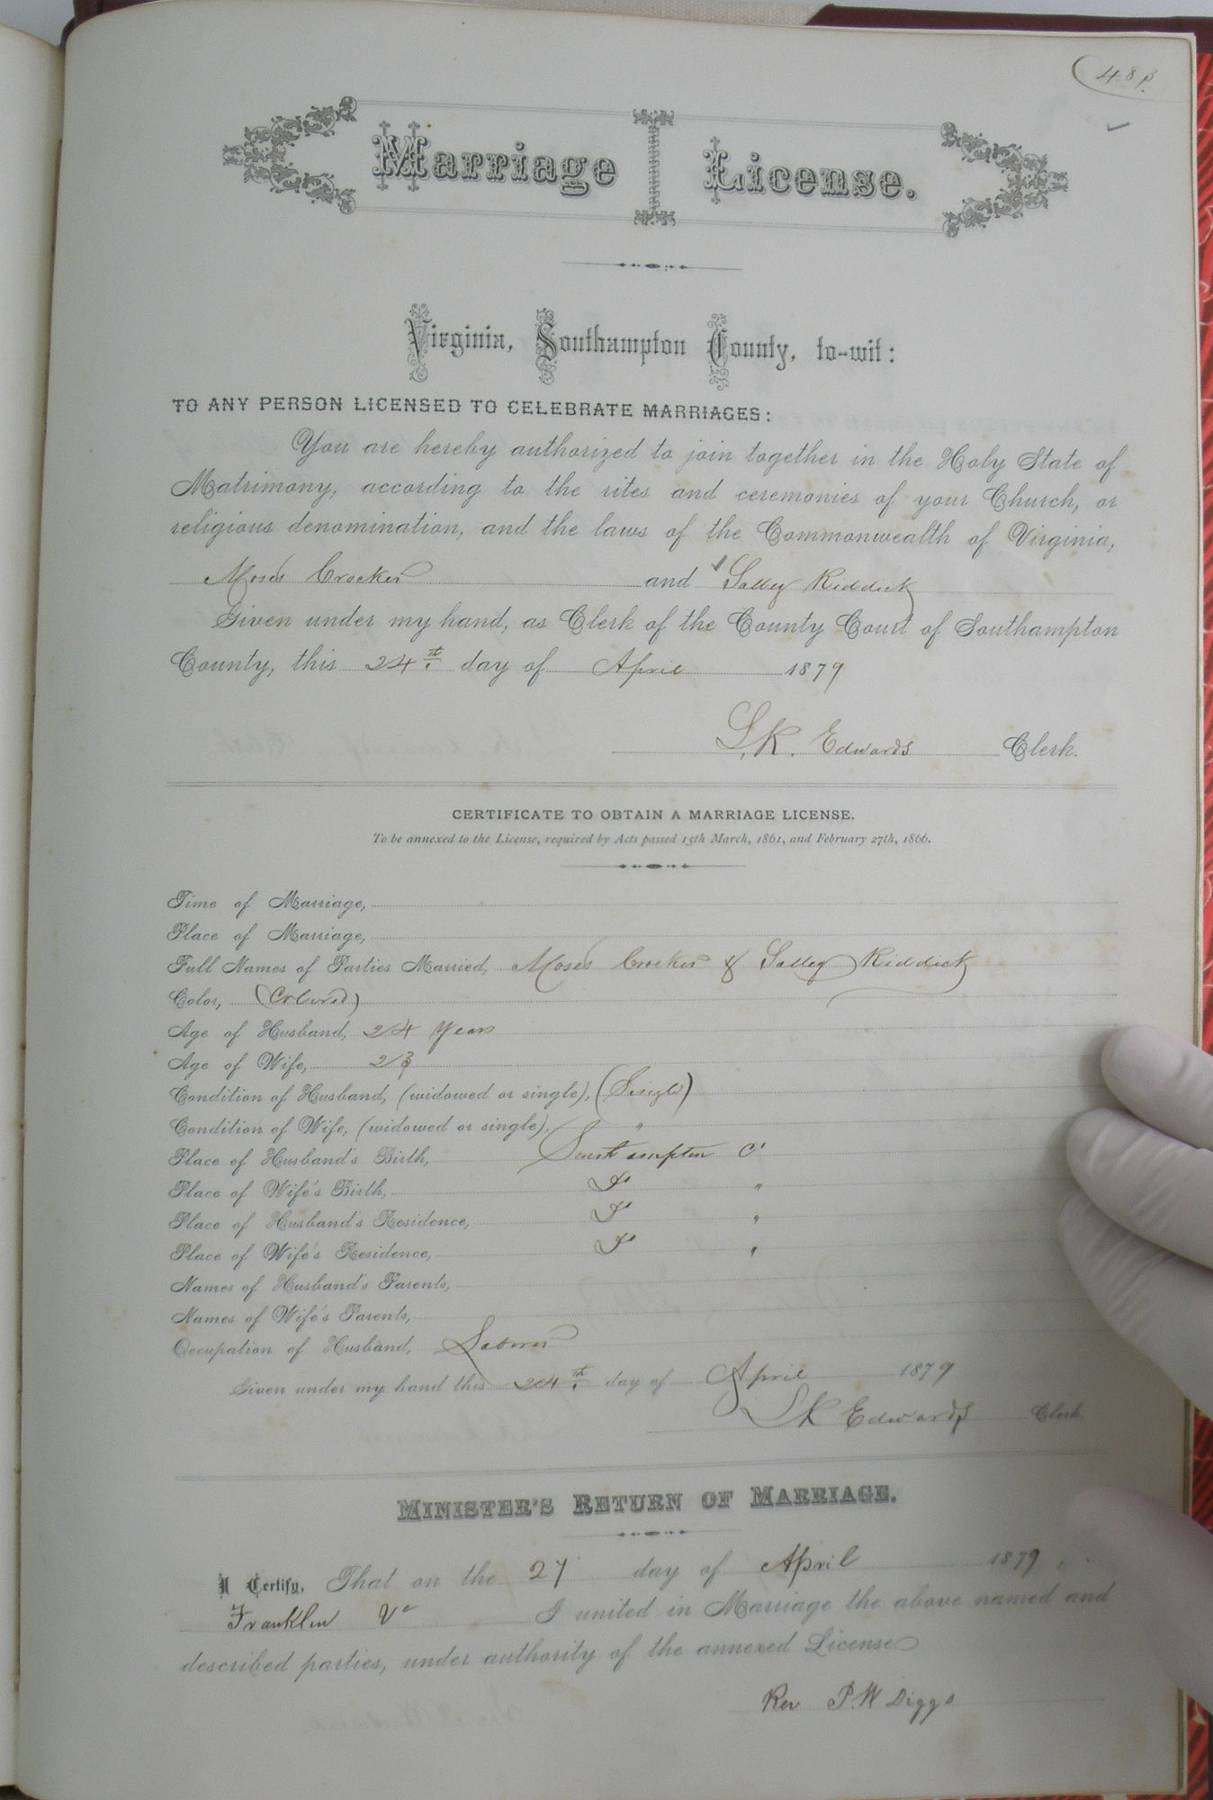 48
Marriage License.
Virginia, Southampton County, to-wit:
TO ANY PERSON LICENSED TO CELEBRATE MARRIAGES:
You are hereby authorized to join together in the Holy State of
Matrimony, according to the rites and ceremonies of your Church, or
religious denomination, and the laws of the Commonwealth of Virginia,
Moses Crocker and Salley Riddick
Given under my hand, as Clerk of the County Court of Southampton
County, this 24th day of April 1879
L.K. Edwards Clerk.
CERTIFICATE TO OBTAIN A MARRIAGE LICENSE.
To be annexed to the License, required by Acts passed 15th March, 1861, and February 27th, 1866.
Time of Marriage,
Place of Marriage,
Full Names of Parties Married, Moses Crocker & Salley Riddick
Color, (Colored)
Age of Husband, 24 Years
Age of Wife, 23
Condition of Husband, (widowed or single), (Single)
Condition of Wife, (widowed or single), "
Place of Husband's Birth, Southampton Co
Place of Wife's Birth, Do "
Place of Husband's Residence, Do "
Place of Wife's Residence, Do "
Names of Husband's Parents,
Names of Wife's Parents,
Occupation of Husband, Laborer
Given under my hand this 24th day of April 1879
L K Edwards Clerk
MINISTER'S RETURN OF MARRIAGE.
I Certify, That on the 27 day of April 1879,
Franklin Va I united in Marriage the above named and
described parties, under authority of the annexed License
Rev P. W Diggs